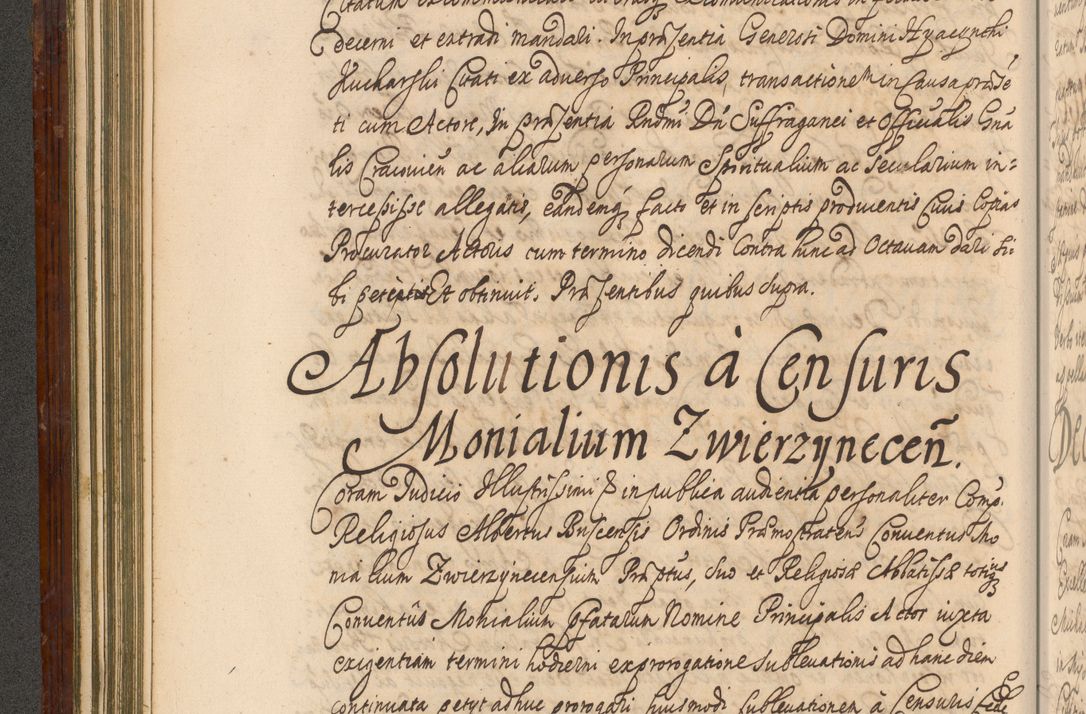 decerni et extradi mandari. In præsentia Generosi Domini Hyacynthi
Kucharski Citati ex adverso Principalis, transactionem in Causa præse
ti cum Actore, In præsentia Rndmi Dni Suffraganei et Officialis Gna
lis Cracouien ac aliarum personarum Spiritualium ac secularium in=
tercessisse allegatis, eandemq facto et in scriptis producentis Cuius Copias
Procurator Actoris cum termino dicendi Contra hinc ad Octauam dari si
bi petiit Et obtinuit. Præsentibus quibus supra.
Absolutionis à Censuris
Monialium Zwierzynecen̄.
Coram Judicio Illustrissimi & in publica audientia personaliter Comp.
Religiosus Albertus Ordinis Præmostraten̄s Conuentus Mo
nialium Zwierzynecensium Præptus, suo et Religiosæ Abbatissæ totiusq
Conuentûs Monialium pfatarum Nomine Principalis Actor iuxta
exigentiam termini hodierni ex prorogatione subleuationis ad hanc diem
continuata petyt adhuc prorogari huiusmodi subleuationem à Censuris